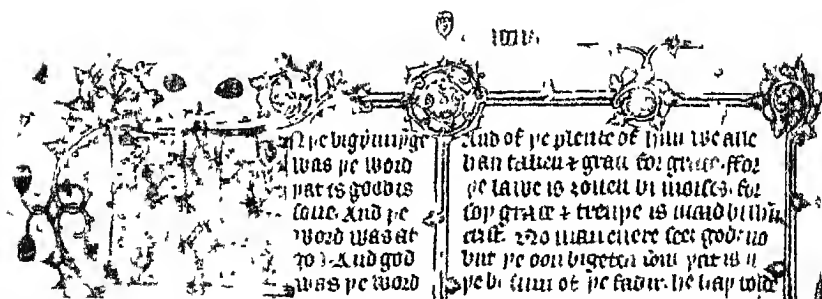 N þe bigynnynge
was þe word
þat is goddis
sone. And þe
word was at
And god
was þe word
And of þe plente of him we alle
han taken & grace for grace. ffor
þe lawe is ȝouen bi moises. for
soþ grace & treuþe is maad bi ihū
crist. No man euere seeȝ god. no
but þe oon bigeten sone þat is
of þe fadir. he haþ told